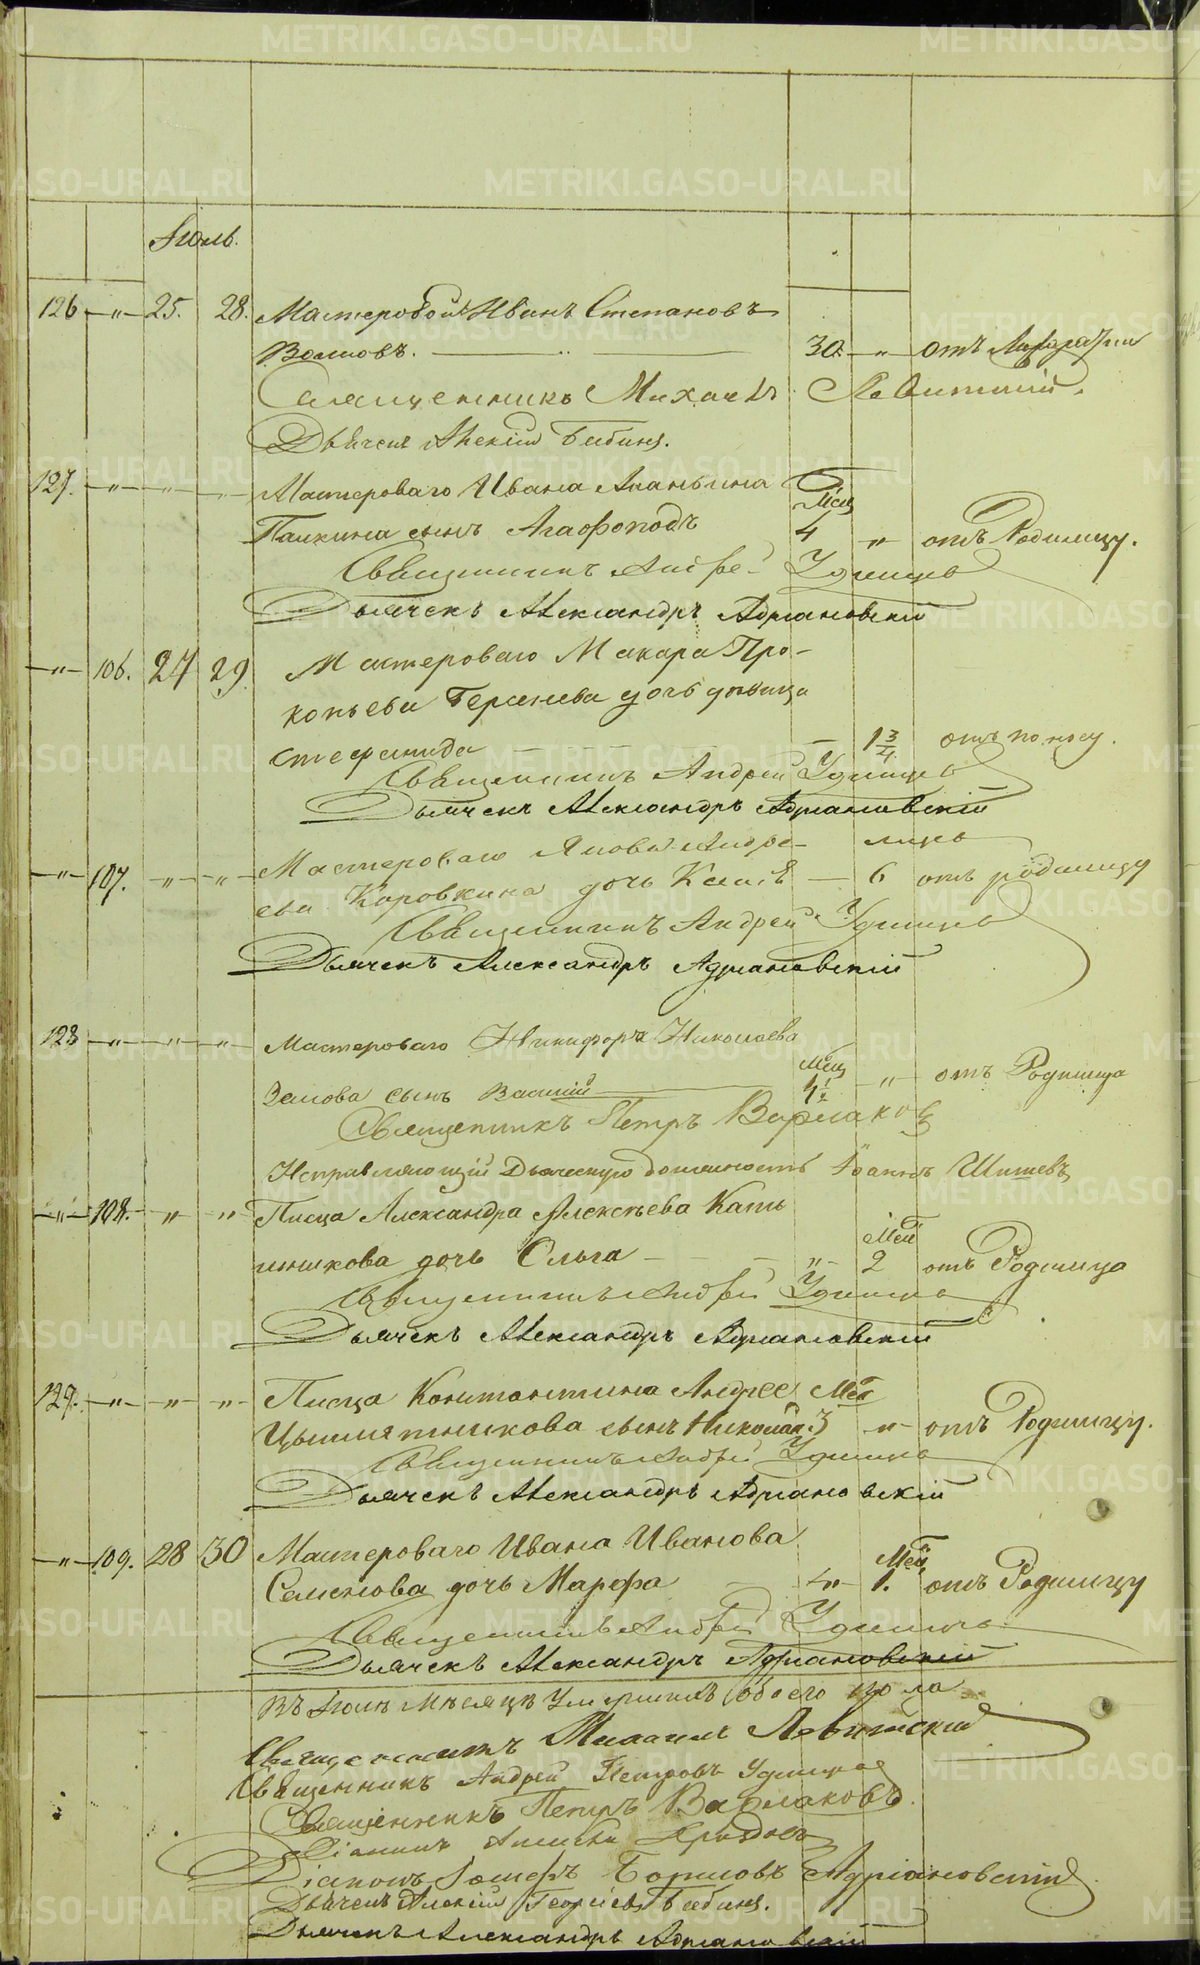 Іюль.
126 — " — 25. 28. Мастеровой Иванъ Степановъ
Волковъ. — 30. — " — отъ
Священникъ Михаилъ Левитскій.
Дьячекъ Алексій Бибинъ.
127. — " — " — " — Мастероваго Ивана Ананьина Мѣсц
Палкина сынъ Агафоподъ 4 " отъ Родимцу.
Священникъ Андрей Удинцовъ
Дьячекъ Александръ Адріановскій
— " — 106. 27 29 Мастероваго Макара Про-
копьева дочь дѣвица
Стефанида — — — 1 3/4 отъ поносу.
Священникъ Андрей Удинцовъ
Дьячекъ Александръ Адріановскій
— " — 107. — " — " — Мастероваго Якова Андре-
ева Коровкина дочь — 6 отъ родимцу
Священникъ Андрей Удинцовъ
Дьячекъ Александръ Адріановскій
128 — " — " — " — Мастероваго Никифора Николаева
Мѣсц
Зымова сынъ Василій — 1 1/2 — " — отъ Родимца
Священникъ Петръ Варлаковъ
Исправляющій Дьяческую должность Іоаннъ Шишевъ
— " — 108. — " — " Писца Александра Алексѣева Кать
Мѣсц
никова дочь Ольга — — — " — 2 отъ Родимца
Священникъ Андрей Удинцовъ
Дьячекъ Александръ Адріановскій
129. — " — " — " — Писца Константина Андрее Мѣсц
сынъ Николай. 3 — " — отъ Родимцу.
Священникъ Андрей Удинцовъ
Дьячекъ Александръ Адріановскій
— " — 109. 28 30 Мастероваго Ивана Иванова
Мѣсц
Семенова дочь Марфа — " — 1. отъ Родимцу
Священникъ Андрей Удинцовъ
Дьячекъ Александръ Адріановскій
Въ Іюлѣ мѣсяцѣ умершихъ обоего пола
Михаилъ Левитскій
Священникъ Андрей Петровъ Удинцовъ
Священникъ Петръ Варлаковъ.
Діаконъ
Діаконъ Іосифъ Борисовъ Адріановскій
Дьячекъ Алексій Георгіевъ Бибинъ.
Дьячекъ Александръ Адріановскій
METRIKI.GASO-URAL.RU